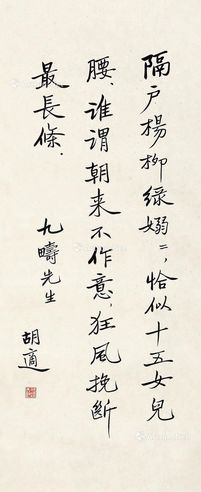 隔户楊柳綠嫋〻，恰似十五女兒
腰，谁謂朝来不作意，狂風挽斷
最長條．
九疇先生
胡適